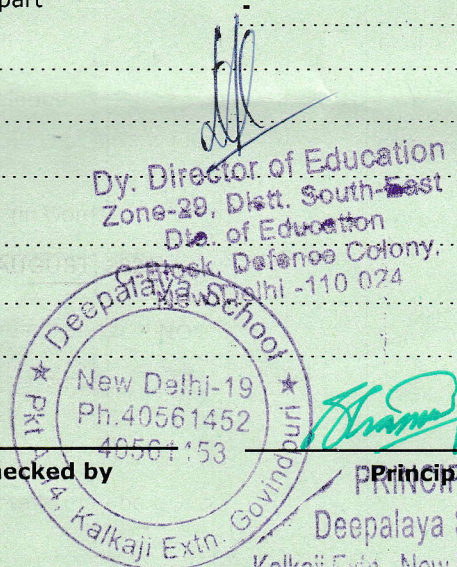 part
Dy. Director of Education
Zone-29, Distt. South-East
Dte. of Education
C-Block, Defence Colony,
New Delhi -110 024
Deepalaya School
New Delhi-19
Ph.40561452
40561453
Kalkaji Extn. Govind
ecked by
Princip
PRINCIP
Deepalaya S
Kalkaji Extn. New